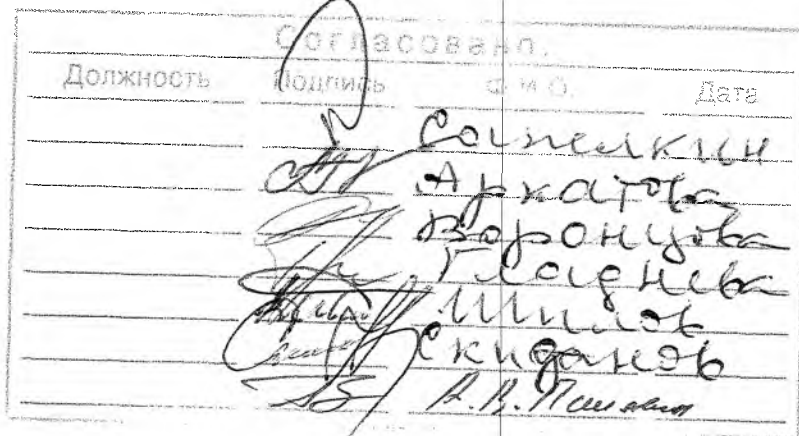 Согласовано.
Должность Подпись Ф.И.О. Дата
Аркатова
Воронцова
Гладнева
Шилов
Скиданов
А.В.